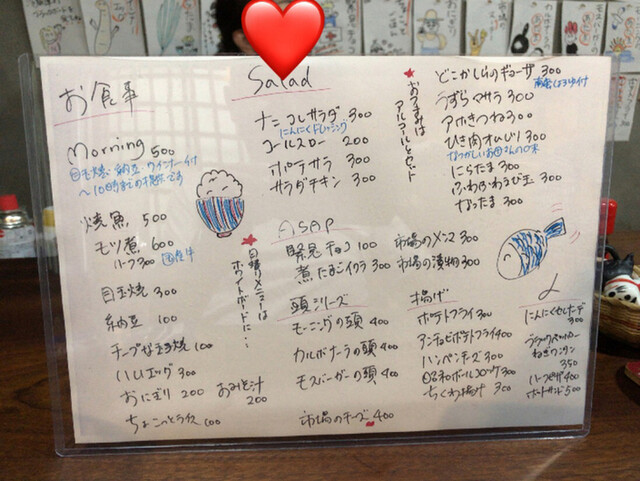 お食事
Morning 500
目玉焼、納豆、ウインナー付
焼魚 500
モツ煮 600
ハーフ300
目玉焼 300
納豆 100
チープな玉子焼 100
ハムエッグ 300
おにぎり 200 おみそ汁 200
ちょこっとライス 100
★日替りメニューは
ホワイトボードに…
Salad
ナンコレサラダ 300
にんにくドレッシング
コールスロー 200
ポテサラ 300
サラダチキン 300
★おつまみは
アルコールとセット
ASAP
チョコ 100
煮たまごイクラ 300
市場のメンマ 300
市場の漬物 300
頭シリーズ
モーニングの頭 400
カルボナーラの頭 400
モスバーガーの頭 400
市場のチーズ 400
どこかしらのギョーザ 300
うずらマサラ 300
アボきつね 300
ひき肉オムレツ 300
なつかしいお母さんの味
にらたま 300
ふわふわえび玉 300
なったま 300
揚げ
ポテトフライ 300
アンチョビポテトフライ 400
ハンペンチーズ 300
昭和ボールコロッケ 300
ちくわ揚げ 300
にんにくセレナーデ
300
350
ハーフピザ 400
ホットサンド 500